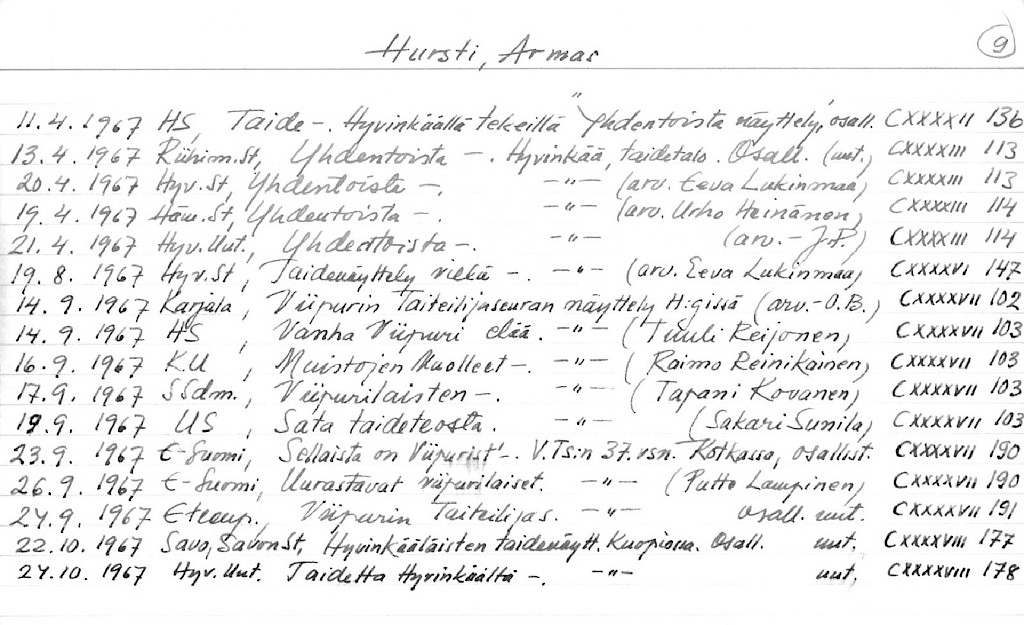 Hursti, Armas
9
11.4.1967 HS, Taide-. Hyvinkäällä tekeillä "Yhdentoista näyttely", osall. CXXXXII 136
13.4.1967 Riihim.St, Yhdentoista -. Hyvinkää, taidetalo. Osall. (uut.) CXXXXIII 113
20.4.1967 Hyv.St, Yhdentoista -. -"- (arv. Eeva Lukinmaa) CXXXXIII 113
19.4.1967 Häm.St, Yhdentoista -. -"- (arv. Urho Heinänen) CXXXXIII 114
21.4.1967 Hyv.Uut., Yhdentoista -. -"- (arv. - J.P.) CXXXXIII 114
19.8.1967 Hyv.St, Taidenäyttely vielä -. -"- (arv. Eeva Lukinmaa) CXXXXVI 147
14.9.1967 Karjala, Viipurin Taiteilijaseuran näyttely H:gissä (arv.-O.B.) CXXXXVII 102
14.9.1967 HS, Vanha Viipuri elää. -"- (Tuuli Reijonen) CXXXXVII 103
16.9.1967 KU, Muistojen Kuolleet -. -"- (Raimo Reinikainen) CXXXXVII 103
17.9.1967 SSdm., Viipurilaisten -. -"- (Tapani Kovanen) CXXXXVII 103
19.9.1967 US, Sata taideteosta. -"- (Sakari Sunila) CXXXXVII 103
23.9.1967 E-Suomi, Sellaista on Viipurist'-. V.TS:n 37. vsn. Kotkassa, osallist. CXXXXVII 190
26.9.1967 E-Suomi, Uurastavat viipurilaiset. -"- (Putte Lampinen) CXXXXVII 190
24.9.1967 Eteenp., Viipurin Taiteilijas. -"- osall. uut. CXXXXVII 191
22.10.1967 Savo, SavonSt, Hyvinkääläisten taidenäytt. Kuopiossa. Osall. uut. CXXXXVIII 177
24.10.1967 Hyv.Uut. Taidetta Hyvinkäältä -. -"- uut, CXXXXVIII 178